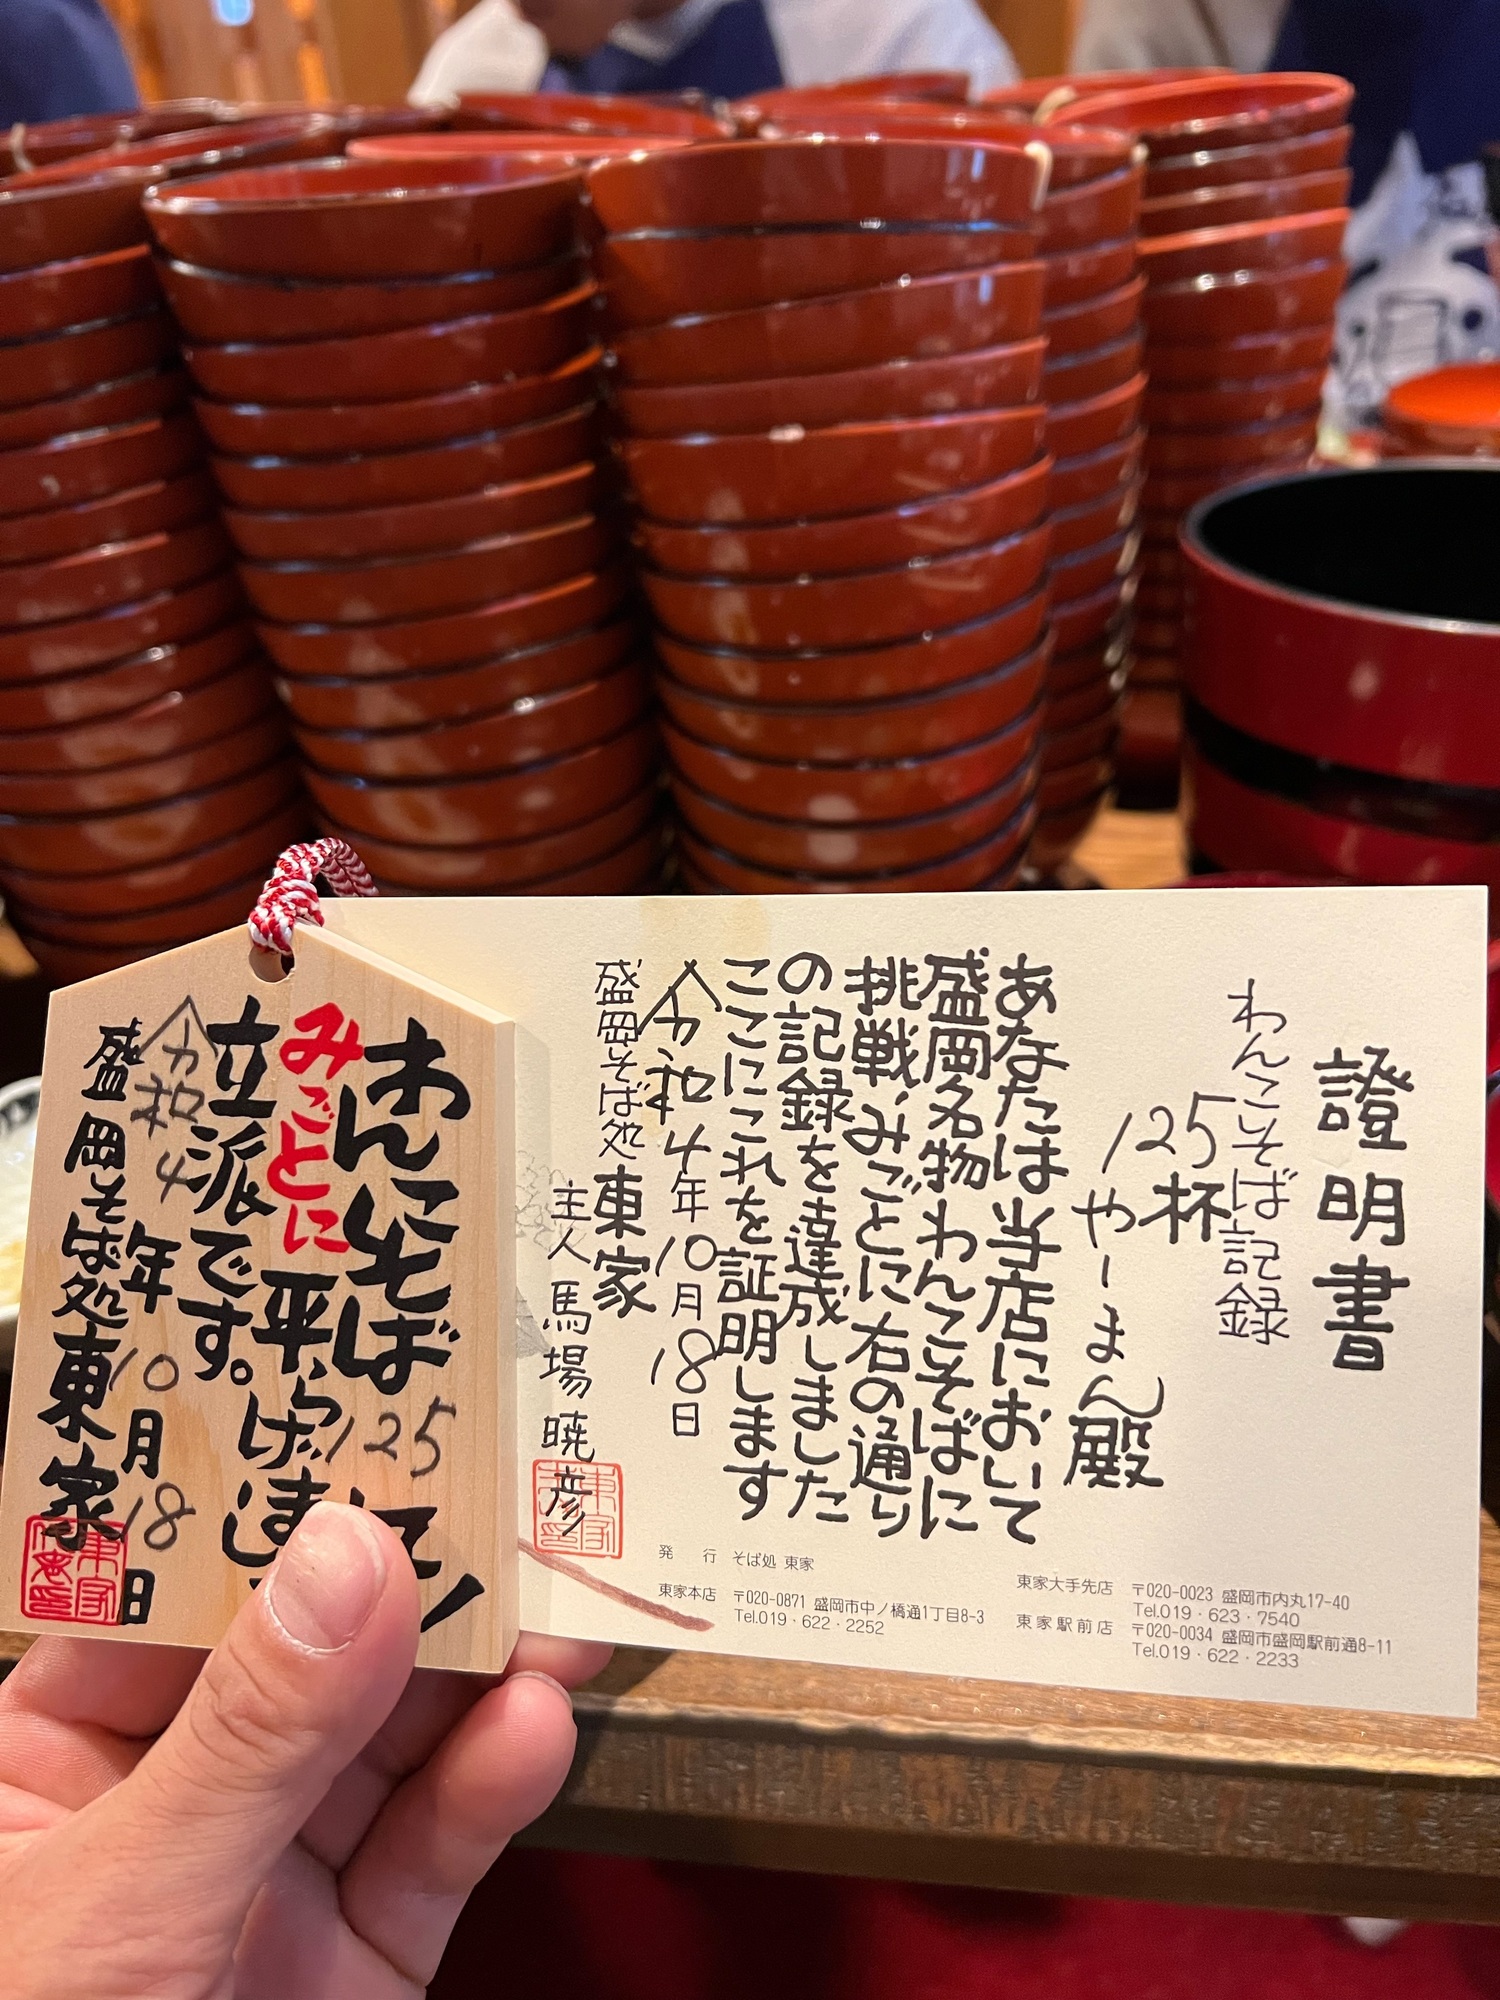 證明書
わんこそば記録
125杯
やーまん殿
あなたは当店において
盛岡名物わんこそばに
挑戦、みごとに右の通り
の記録を達成しました
ここにこれを証明します
令和4年10月18日
盛岡そば処 東家
主人 馬場暁彦
発行 そば処 東家
東家本店 〒020-0871 盛岡市中ノ橋通1丁目8-3
Tel.019・622・2252
東家大手先店 〒020-0023 盛岡市内丸17-40
Tel.019・623・7540
東家駅前店 〒020-0034 盛岡市盛岡駅前通8-11
Tel.019・622・2233
わんこそば125
みごとに平らげまし
立派です。
令和4年10月18日
盛岡そば処東家